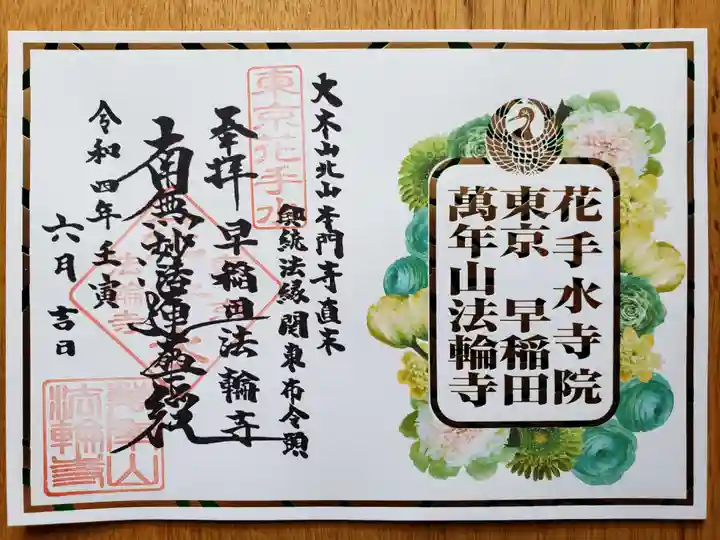 花手水寺院
東京 早稲田
萬年山法輪寺
大本山北山本門寺直末
興統法縁関東布令頭
東京花手水
奉拝 早稲田法輪寺
南無妙法蓮華経
令和四年壬寅
六月吉日
萬年山
法輪寺
法輪寺